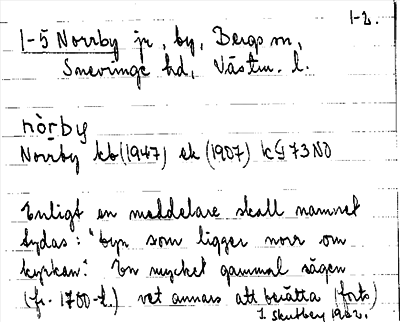 1-2.
1-5 Norrby jr, by, Bergs sn,
Snevringe hd, Västm. l.
nòrby
Norrby kb (1947) ek (1907) kG 73 NO
Enligt en meddelare skall namnet
tydas: "byn som ligger norr om
kyrkan." En mycket gammal sägen
(fr. 1700-t.) vet annars att berätta (forts)